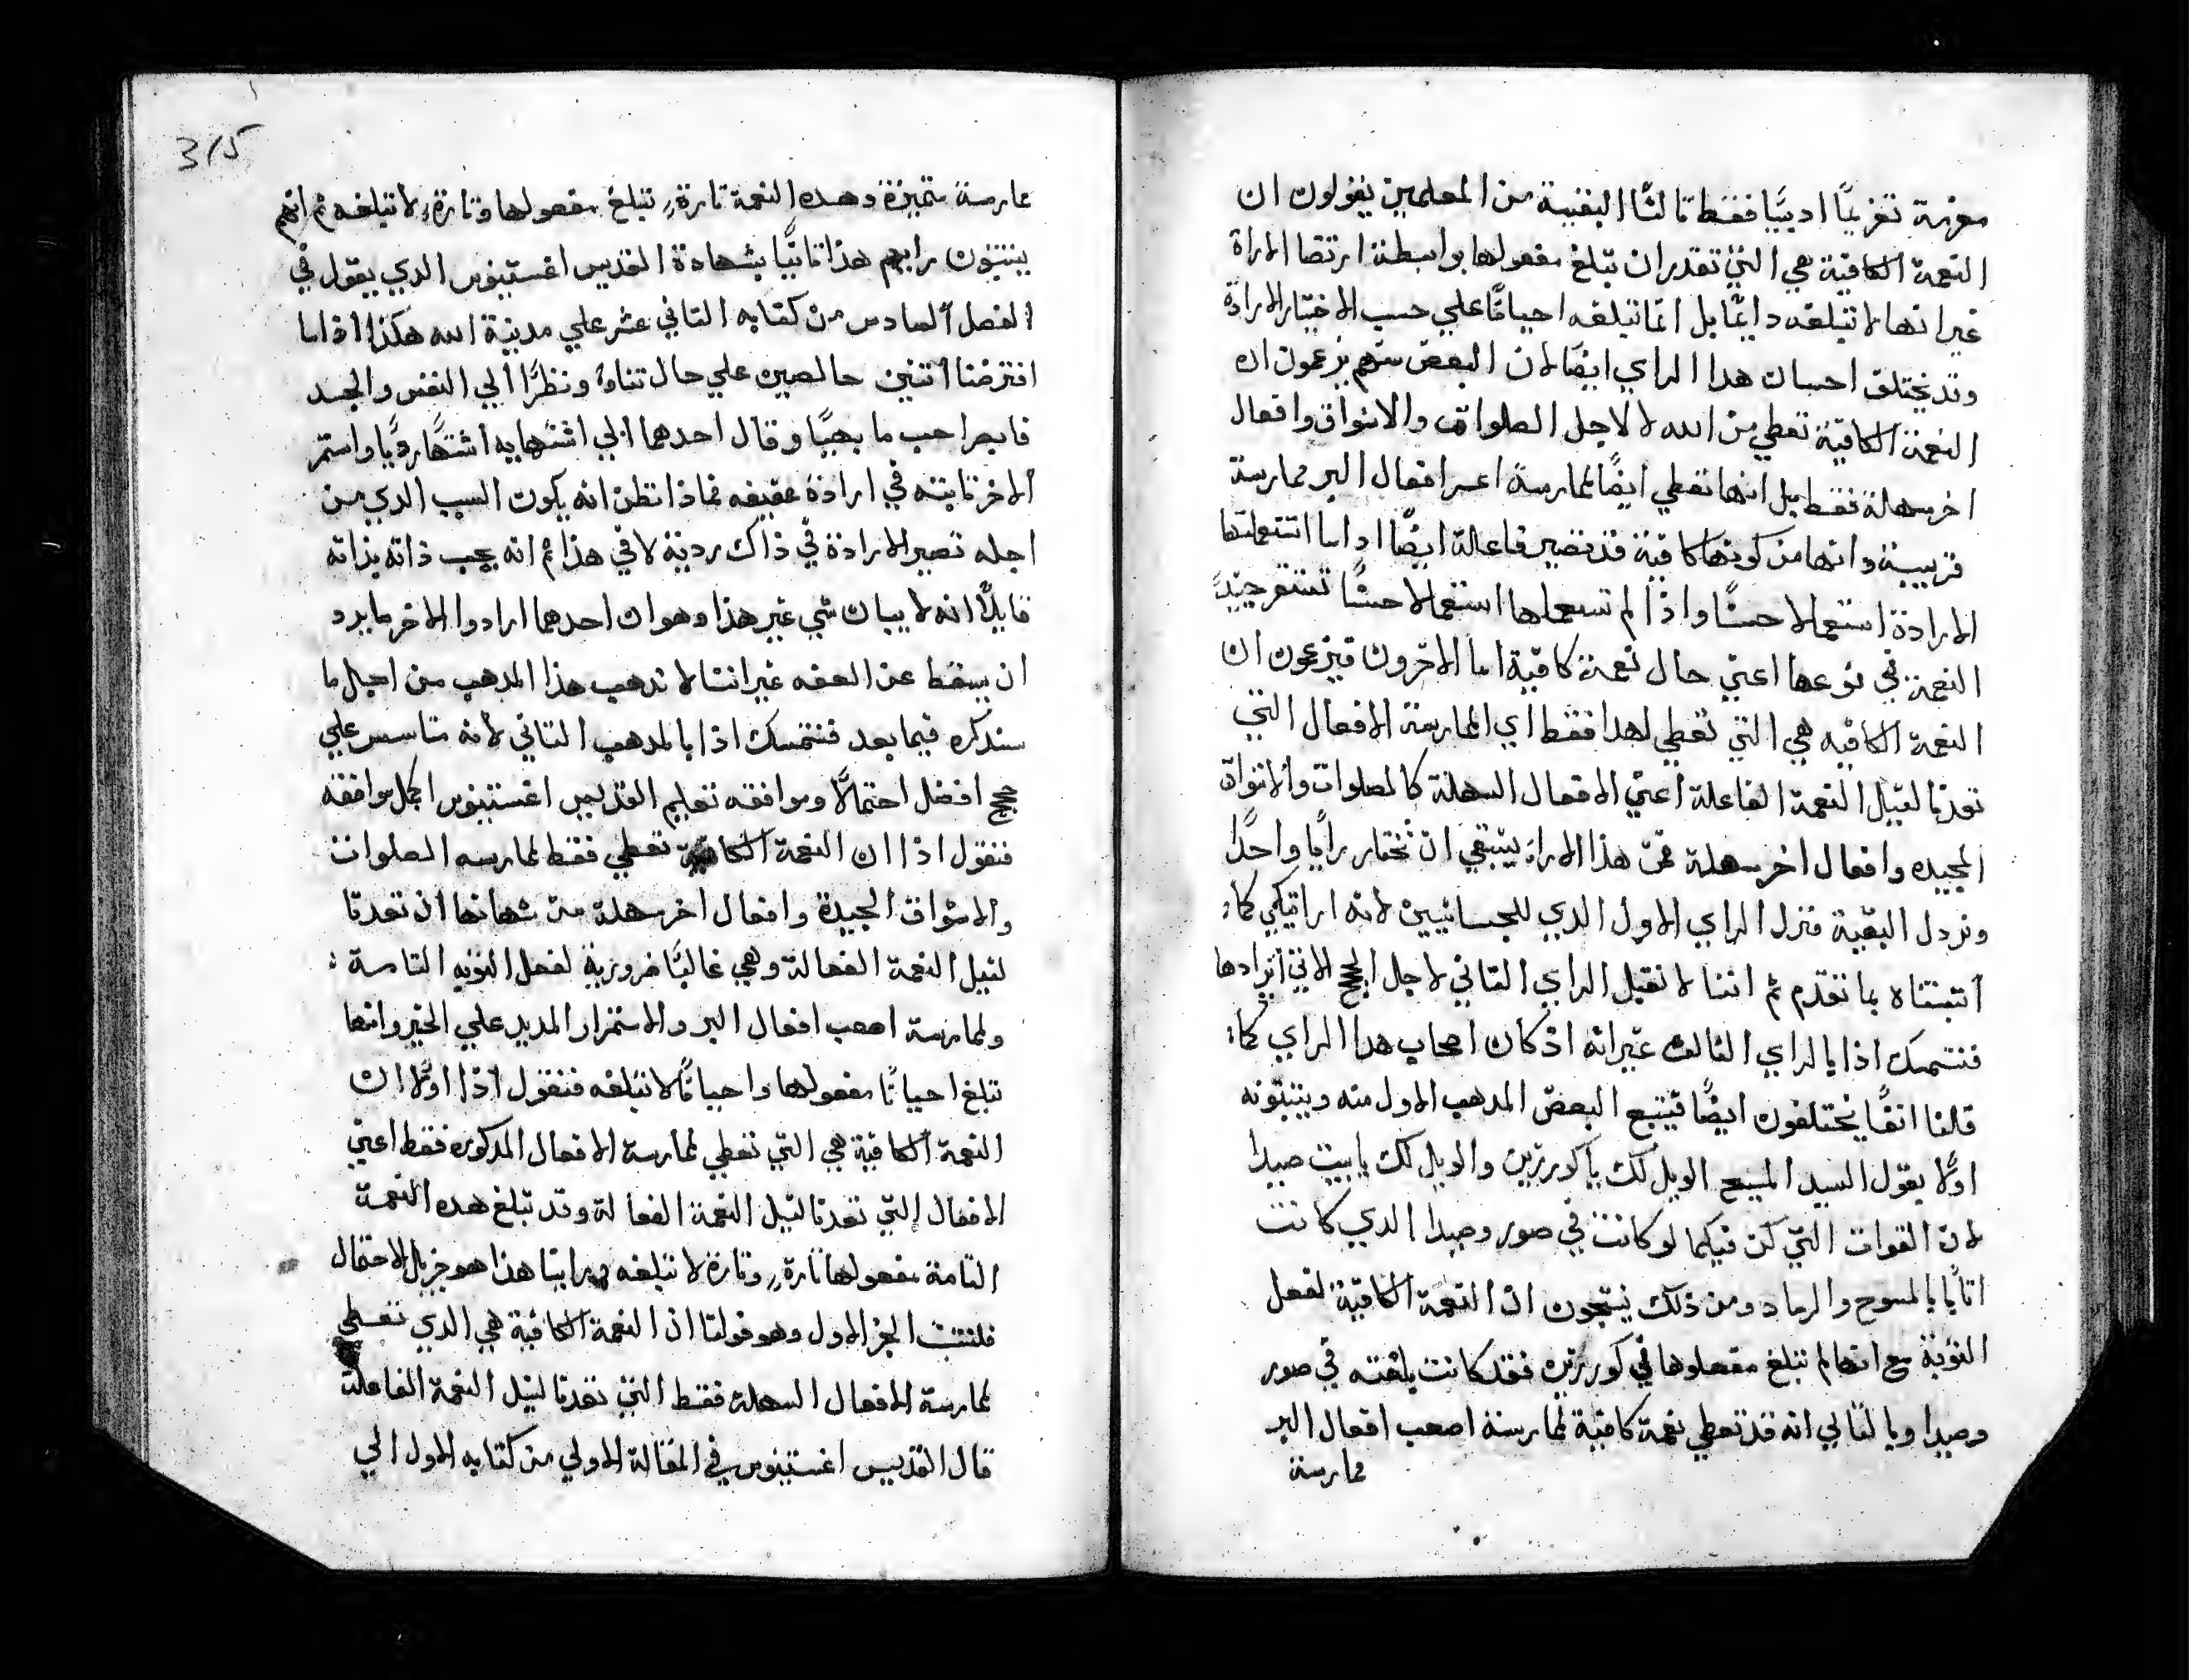 معزمة تعزيمًا ادبيًا فقط ثالثًا البقية من المعلمين يقولون ان
النعمة الكافية هي التي تقدر ان تبلغ مفعولها بواسطة ارتضا الارادة
غير انها لا تبلغه دايمًا بل انما تبلغه احيانًا علي حسب الاختيار الارادة
وقد يختلف احسان هدا الراي ايضًا لان البعض منهم يزعمون ان
النعمة الكافية تعطي من الله لا لاجل الصلوات والاشواق وافعال
اخر سهلة فقط بل انها تعطي ايضًا لممارسة اعسر افعال البر ممارسة
قريبة وانها من كونها كافية قد تصير فاعلة ايضًا اداما استعملتها
الارادة استعمالا حسنًا واذا لم تستعملها استعمالا حسنًا تستقر حينيدٍ
النعمة في نوعها اعني حال نعمة كافية اما الاخرون فيزعمون ان
النعمة الكافيه هي التي تعطي لهدا فقط اي لممارسة الافعال التي
تعدنا لقبل النعمة الفاعلة اعني الافعال السهلة كالصلوات والاشواق
الجيده وافعال اخر سهلة فمن هذا الاراء ينبغي ان نختار رايًا واحدًا
ونردل البقية فنزل الراي الاول الدي للجسانيين لانه اراتيكي كما:
اتبتناه بما تقدم ثم اننا لا نقبل الراي التاني لاجل الحجج الاتي ايرادها
فنتمسك اذا بالراي الثالث غير انه اذ كان اصحاب هدا الراي كما:
قلنا انفًا يختلفون ايضًا فيتبع البعض المدهب الاول منه ويثبتونه
اولًا بقول السيد المسيح الويل لك يا كورزين والويل لك يا بيت صيدا
لان القوات التي كن فيكما لو كانت في صور وصيدا الدي كانت
اتابا بالمسوح والرماد ومن ذلك ينتجون ان النعمة الكافية لفعل
التوبة مع انها لم تبلغ مفعلوها في كورزين فقد كانت بلغته في صور
وصيدا وبالتالي انه قد تعطي نعمة كافية لممارسة اصعب افعال البر
ممارسة
315
ممارسة متميزة وهده النعمة تارةٍ تبلغ مفعولها وتارةٍ لا تبلغه ثم انهم
يثبتون رايهم هذا ثانيًا بشهادة القديس اغستينوس الدي يقول في
الفصل السادس من كتابه التاني عشر علي مدينة الله هكذا اذا ما
افترضنا اتنين حاصلين علي حال تناه ونظرًا الي النفس والجسد
فابصر احب ما بهيًا وقال احدهما الي اشتهايه اشتهًا رديًا واستمر
الاخر ثابته في ارادة عفيفه فماذا تظن انه يكون السبب الدي من
اجله تصير الارادة في ذاك ردية لا في هذا ثم انه يجب ذاته بذاته
قايلًا انه لا يبان شي غير هذا وهو ان احدهما اراد والاخر ما يرد
ان يسقط عن العفه غير اننا لا ندهب هذا المدهب من اجل ما
سندكره فيما بعد فنتمسك اذا بالمدهب التاني لانه متاسس علي
حجج افضل احتمالًا وموافقه تعليم القديس اغستينوس اكمل موافقه
فنقول اذا ان النعمة الكافية تعطي فقط لممارسه الصلوات
والاشواق الجيدة وافعال اخر سهلة من شهانها ان تعدنا
لنيل النعمة الفعالة وهي غالبًا ضرورية لفعل التوبه التامة :
ولممارسة اصعب افعال البر والاستمرار المديد علي الخير وانها
تبلغ احيانًا مفعولها واحيانًا لا تبلغه فنقول اذا اولًا ان
النعمة الكافية هي التي تعطي لممارسة الافعال المدكوره فقط اعني
الافعال التي تعدنا لنيل النعمة الفعالة وقد تبلغ هده النعمة
التامة مفعولها تارةٍ وتارة لا تبلغه وراينا هذا هو جزيل الاحتمال
فلنثبت الجز الاول وهو قولنا ان النعمة الكافية هي الدي تعطي
لممارسة الافعال السهلة فقط التي تعدنا لنيل النعمة الفاعلة
قال القديس اغستينوس في المقالة الاولي من كتابه الاول الي